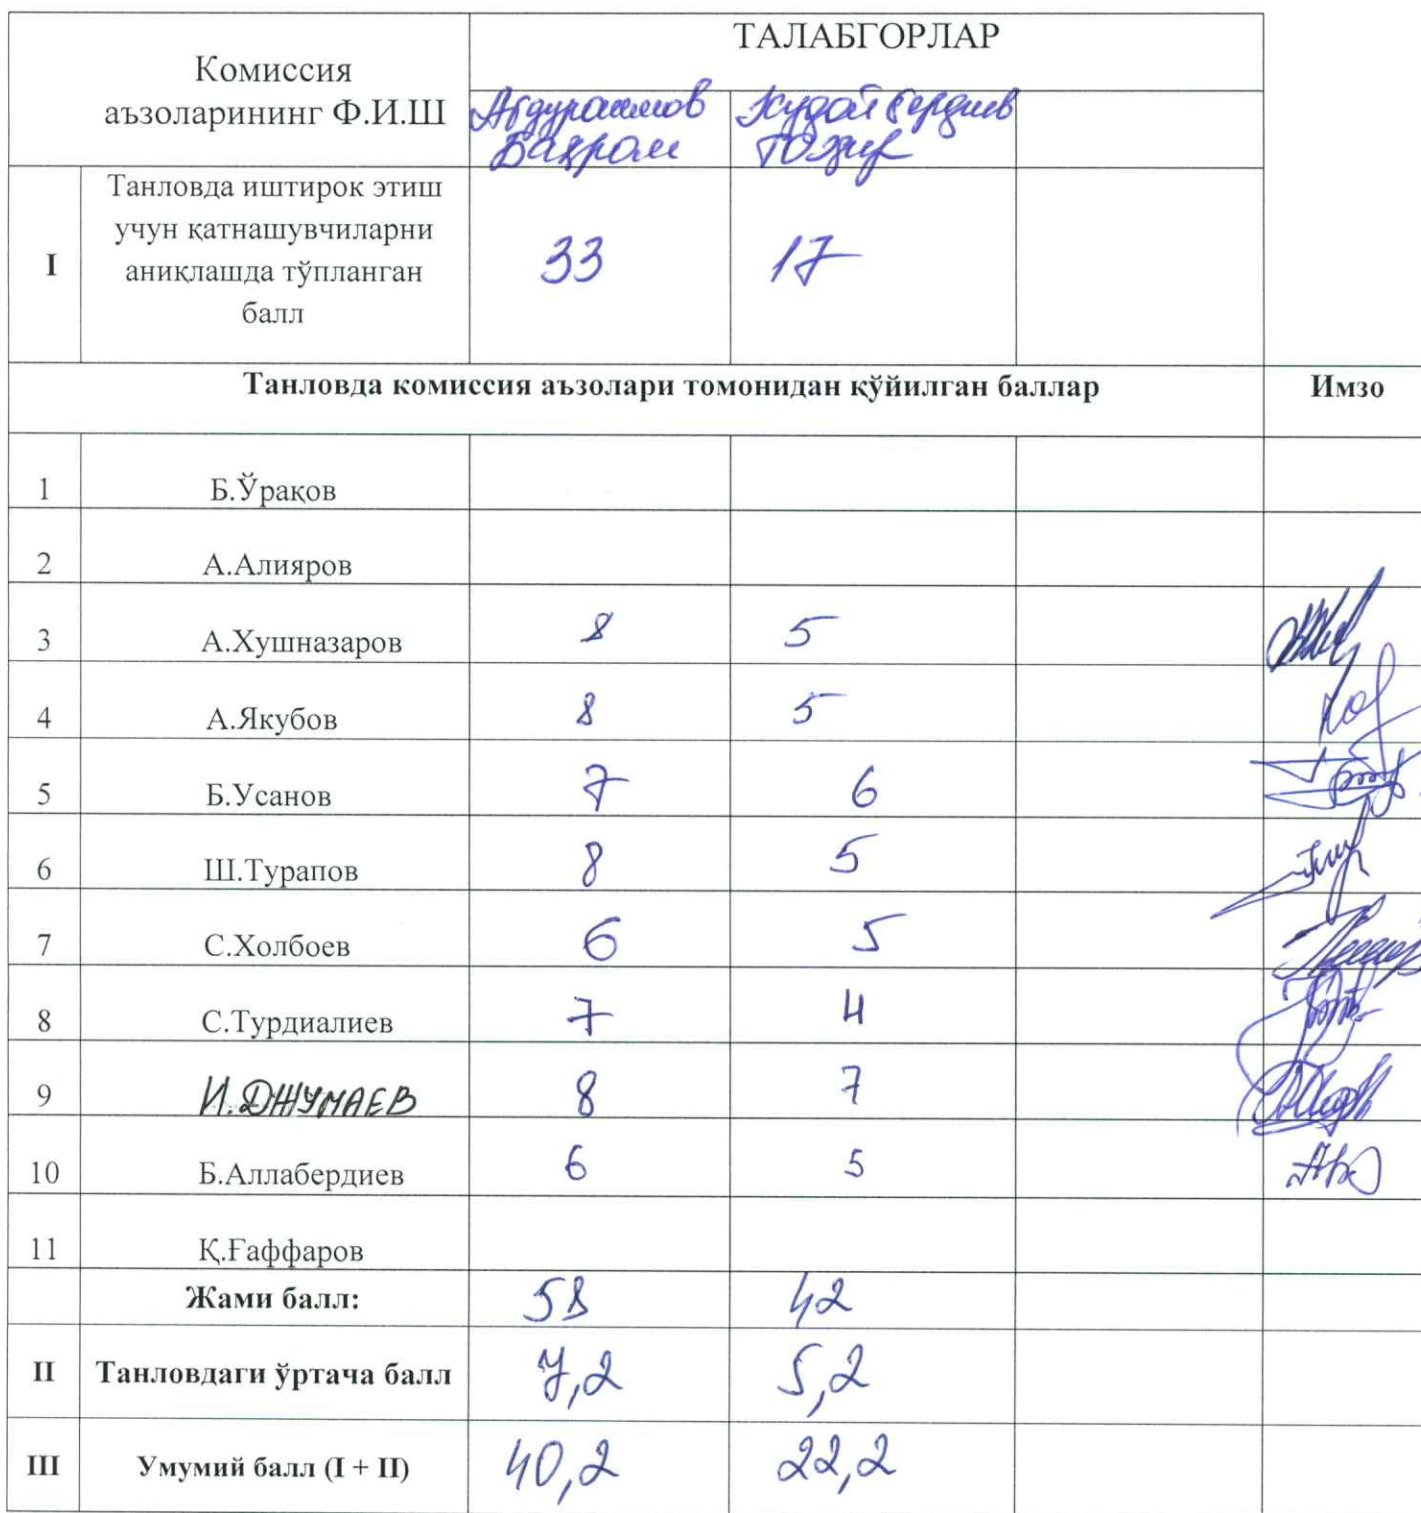 ТАЛАБГОРЛАР
Комиссия
аъзоларининг Ф.И.Ш
Абдураимов
Бахром
Худойбердиев
Тожир
I
Танловда иштирок этиш
учун қатнашувчиларни
аниқлашда тўпланган
балл
33 17
Танловда комиссия аъзолари томонидан қўйилган баллар Имзо
1 Б.Ўрақов
2 А.Алияров
3 А.Хушназаров 8 5
4 А.Якубов 8 5
5 Б.Усанов 7 6
6 Ш.Турапов 8 5
7 С.Холбоев 6 5
8 С.Турдиалиев 7 4
9 И.ДЖУМАЕВ 8 7
10 Б.Аллабердиев 6 5
11 Қ.Ғаффаров
Жами балл: 58 42
II Танловдаги ўртача балл 7,2 5,2
III Умумий балл (I + II) 40,2 22,2